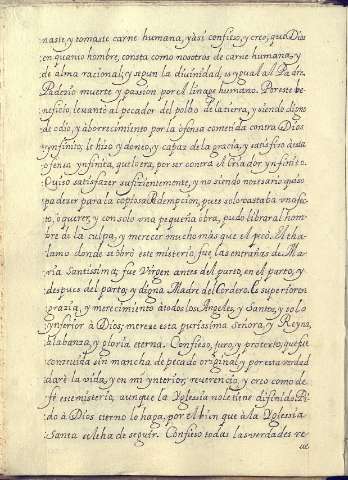 naste y tomaste carne humana, y asi confieso, y creo, que Dios
en quanto hombre, consta como nosotros de carne humana, y
de alma racional; y segun la divinidad, es ygual al Padre.
Padecio muerte y passion por el linage humano. Por este be
neficio, levantó al pecador del polbo de la tierra, y siendo digno
de odio, y aborrecimiento por la ofensa cometida contra Dios
ynfinito, le hizo ydoneo, y capaz de la gracia, y satisfizo dista
ofensa ynfinita, que lo era, por ser contra el Criador ynfinito.
Quiso satisfazer suficientemente, y no siendo necesario quiso
padeser para la copiosa Redempcion, pues solo vastaba
ò querer, y con solo una pequeña obra, pudo librar al hom
bre de la culpa, y merecer mucho mas que el pecò. El tha
lamo donde se obrò este misterio, fue las entrañas de Ma
ria Santissima; fue Virgen antes del parto, en el parto, y
despues del parto; y digna Madre del Cordero. Es superior en
grazia, y merecimiento à todos los Angeles, y Santos, y solo
ynferior à Dios; merese esta purissima Señora, y Reyna,
alabanza, y gloria eterna. Confieso, juro, y protexto, que fue
concevida sin mancha de pecado original, y por esta verdad
darè la vida, y en mi ynterior, reverencio, y creo como de
fè este misterio, aunque la Yglesia no le tiene difinido. Pi
do à Dios eterno lo haga, por el bien que à la Yglessia
Santa se le ha de seguir. Confieso todas las verdades re
ue